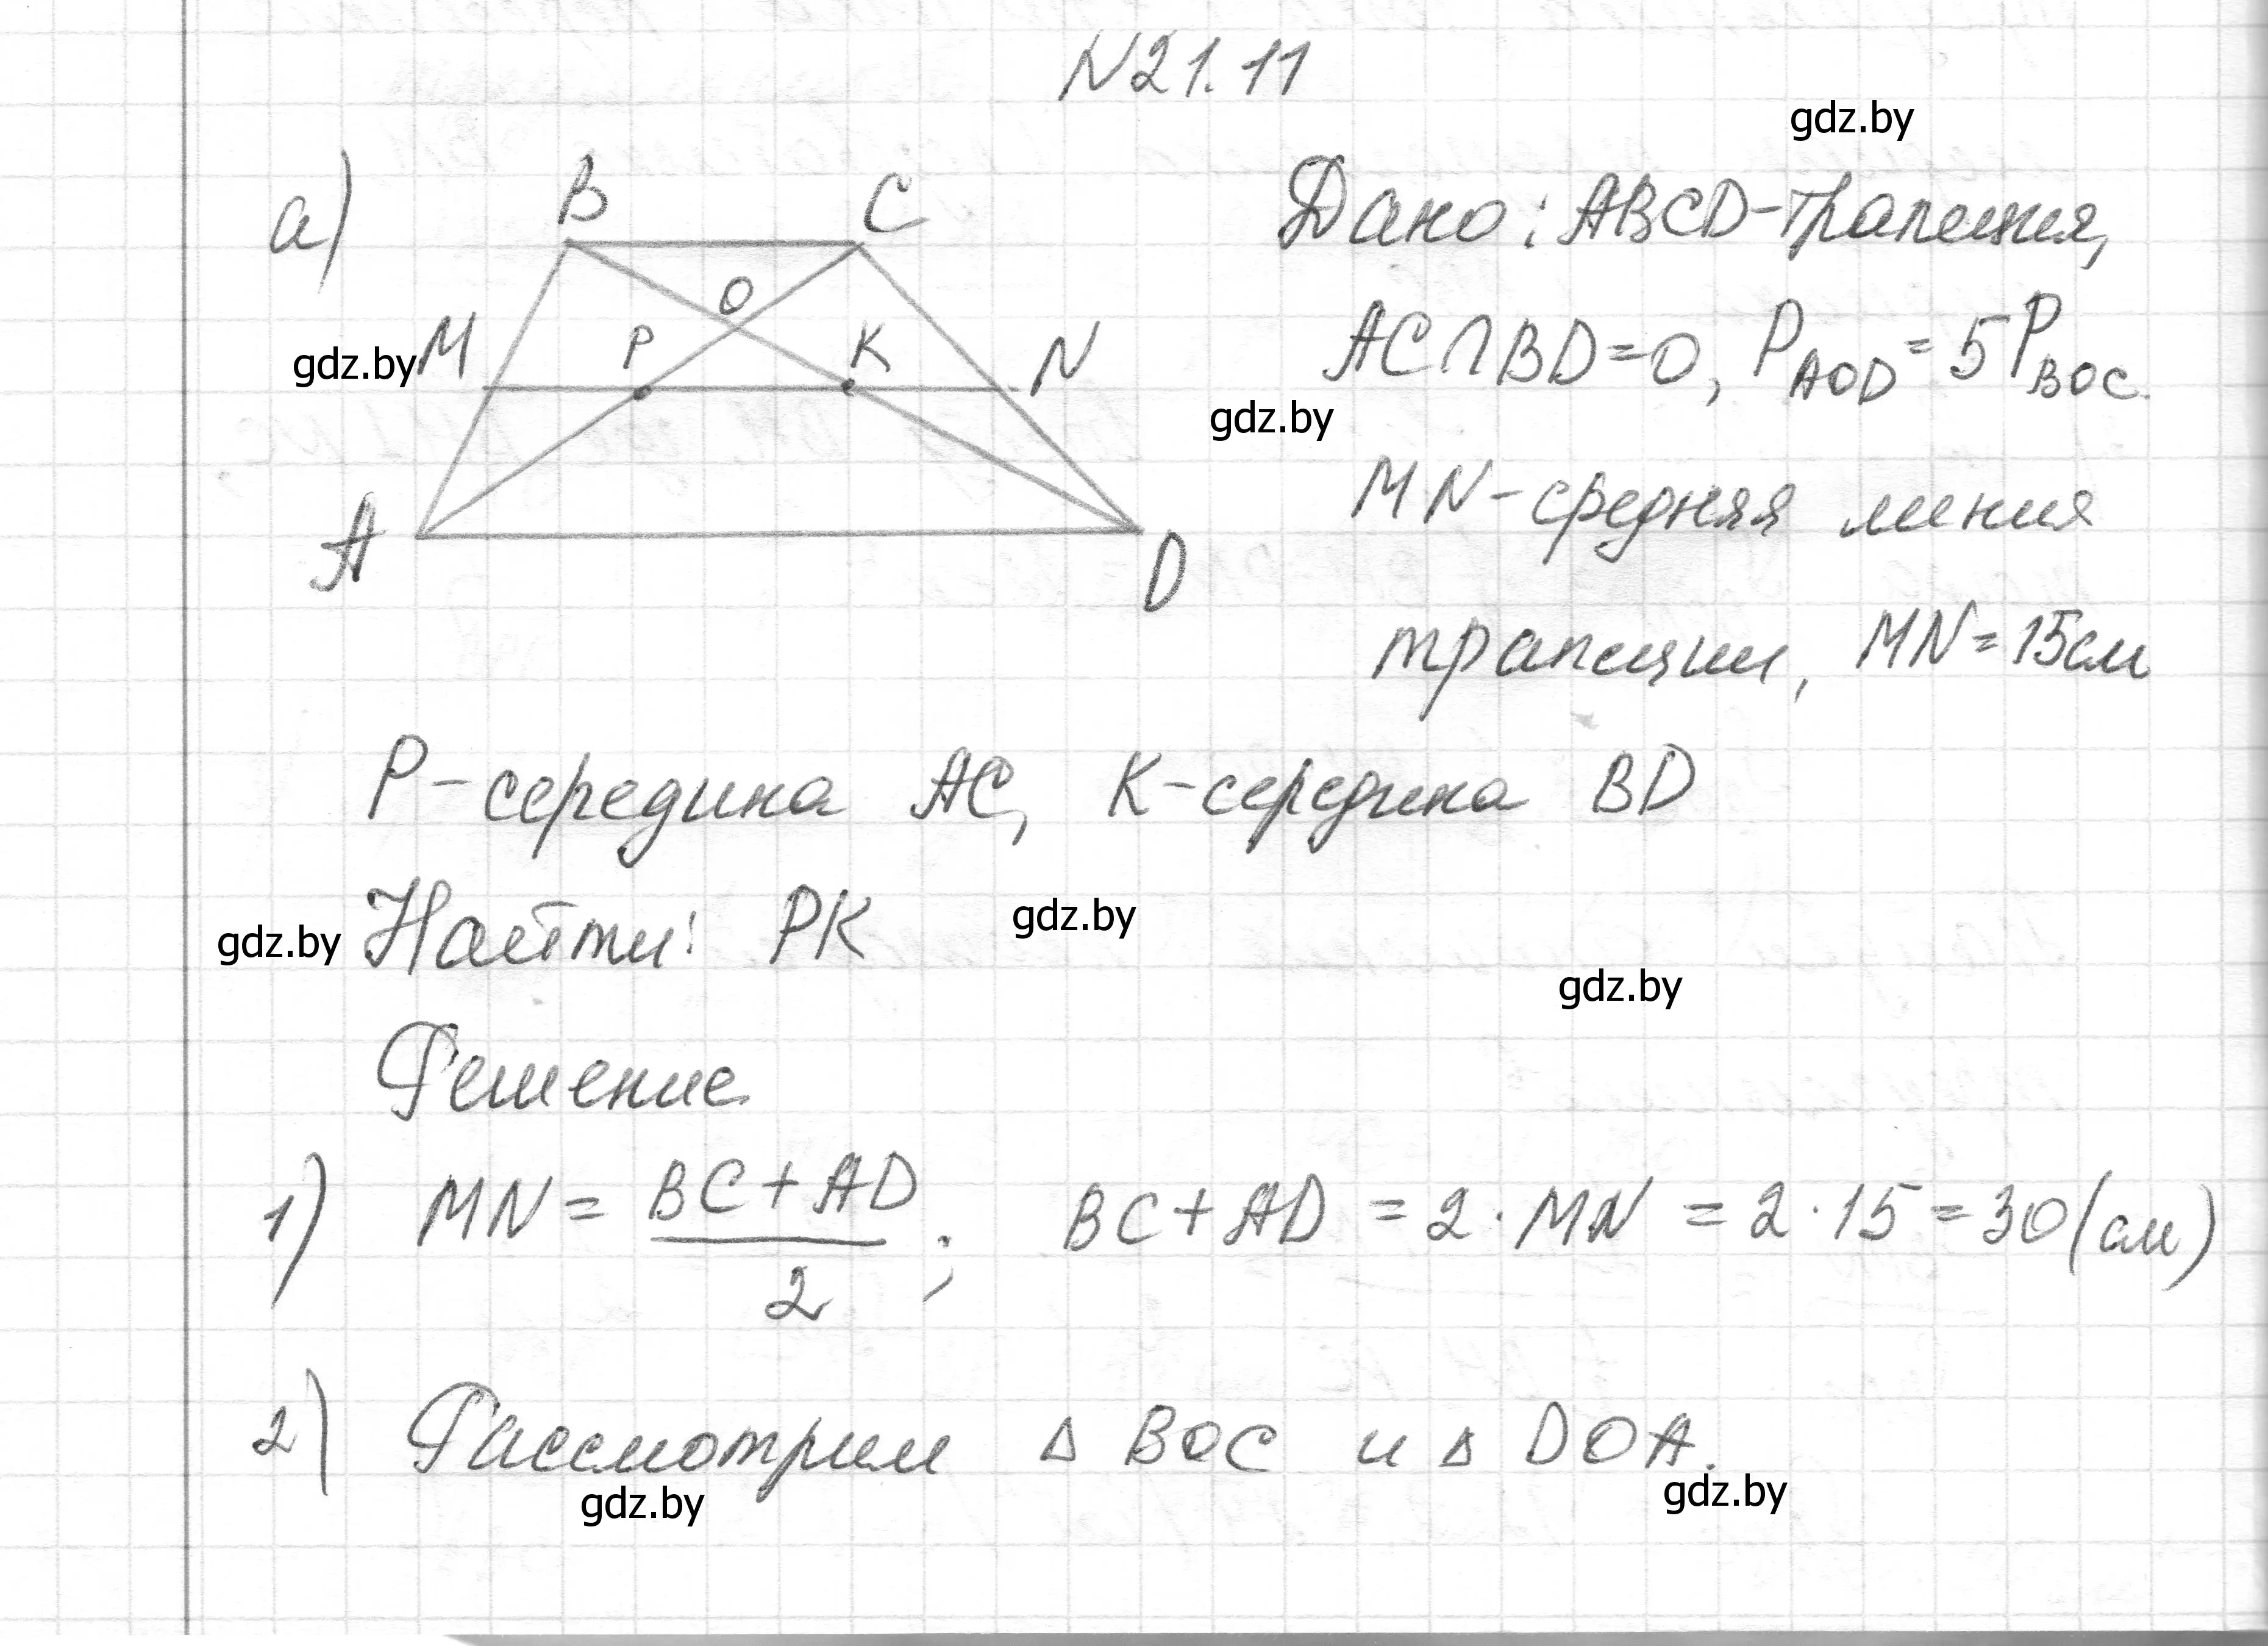 N21.11
gdz.by
а)
B C
O
M P K N
A D
gdz.by
Дано: ABCD-трапеция,
AC∩BD=O, P_AOD = 5P_BOC.
gdz.by
MN-средняя линия
трапеции, MN=15см
P-середина AC, K-середина BD
gdz.by Найти: PK gdz.by
gdz.by
Решение
1) MN = (BC+AD)/2; BC+AD = 2·MN = 2·15=30(см)
2) Рассмотрим Δ BOC и Δ DOA.
gdz.by gdz.by